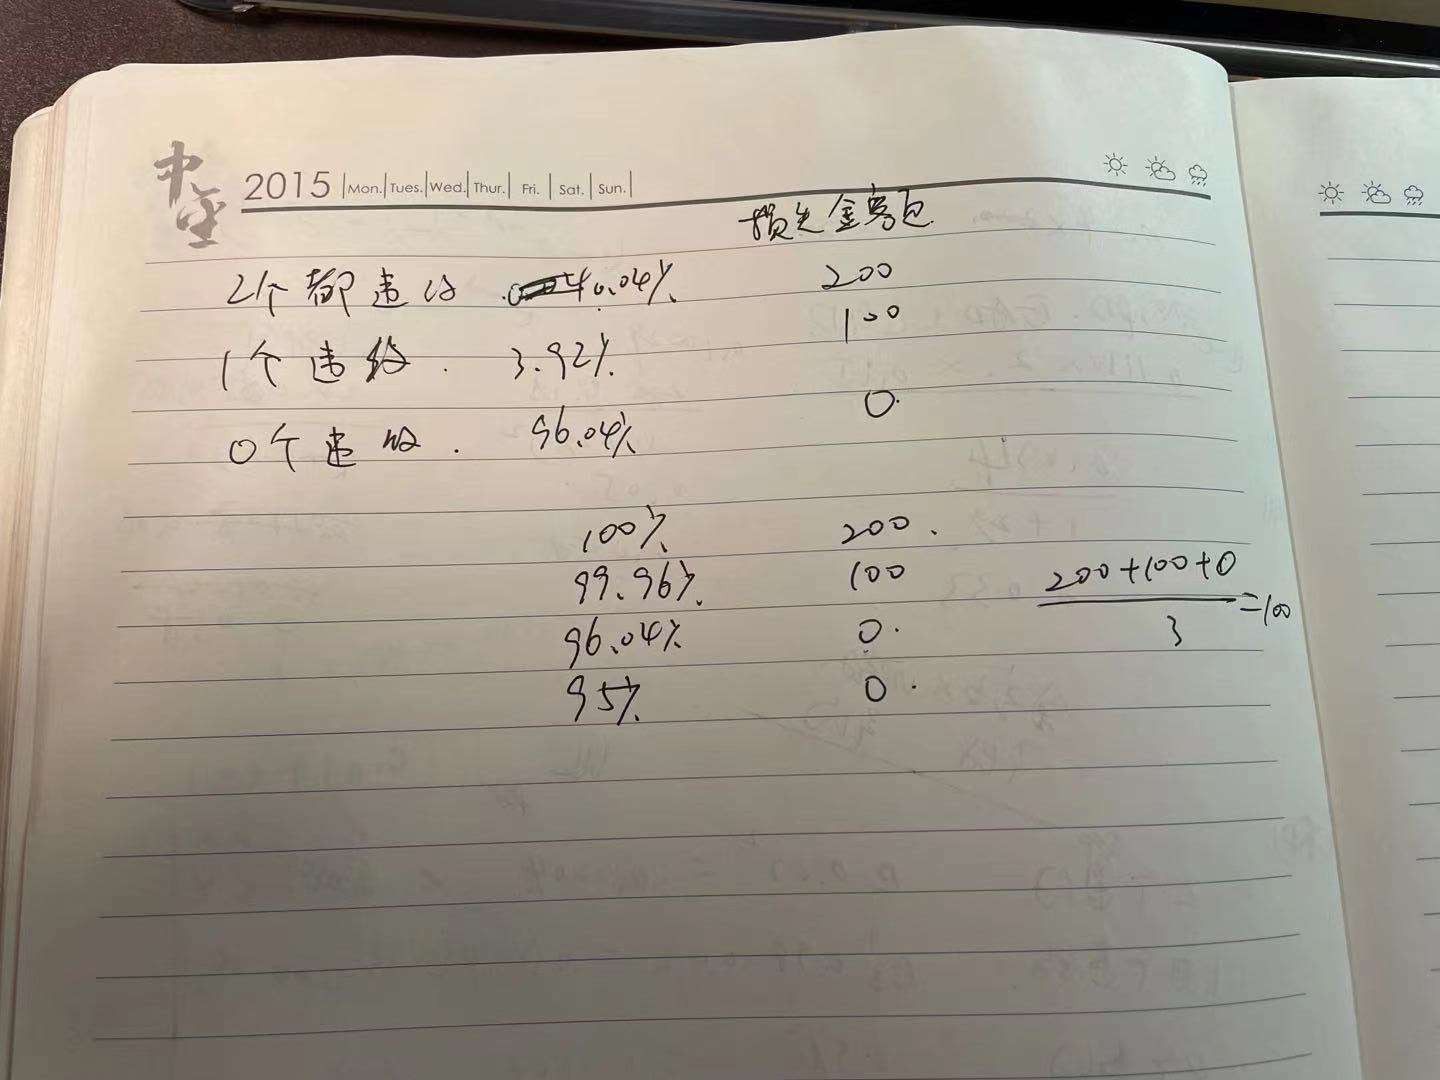 中金 2015 Mon. Tues. Wed. Thur. Fri. Sat. Sun.
损失金额
2个都违约 0.04% 200
1个违约. 3.92% 100
0个违约. 96.04% 0.
100% 200.
99.96% 100
96.04% 0.
95% 0.
200+100+0
3
=100